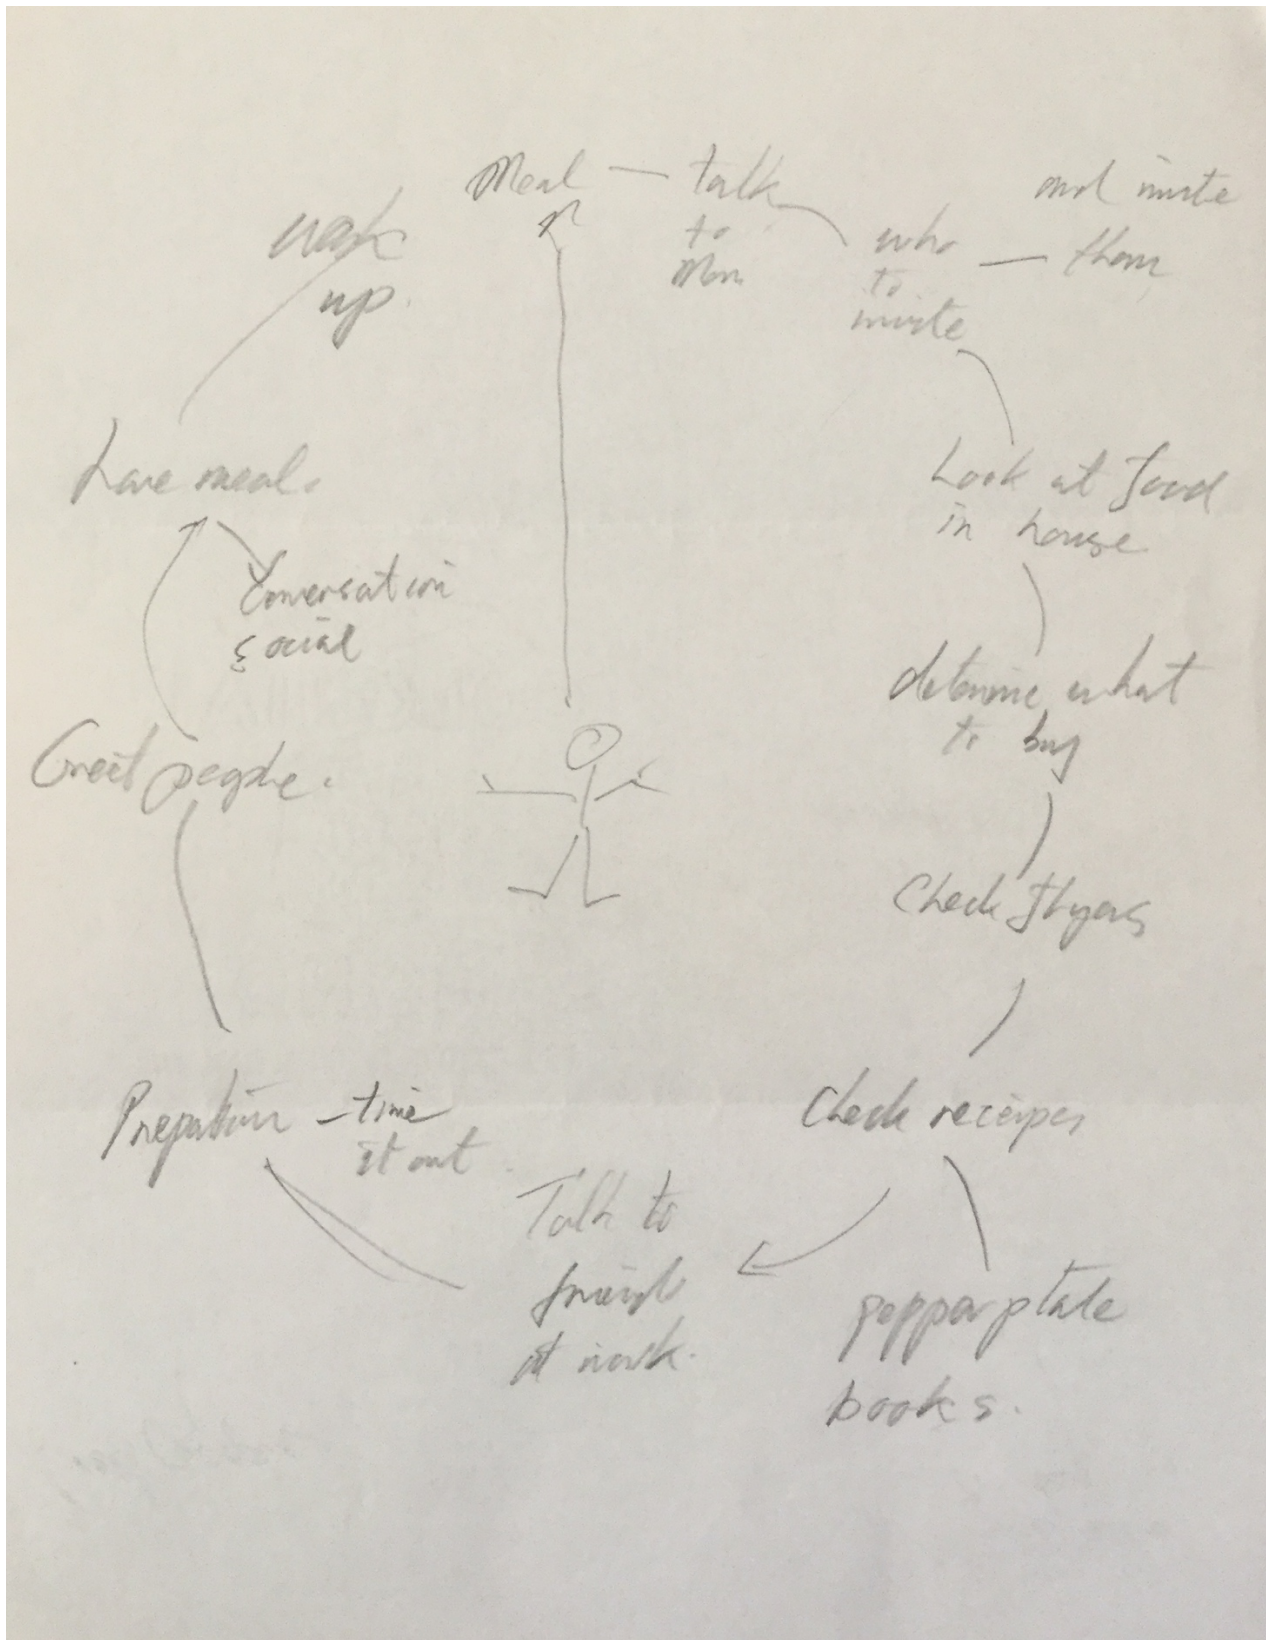 Meal — talk
to
Mom
who
to
invite
and invite
them
Look at food
in house
determine what
to buy
Check flyers
Check receipes
pepperplate
books.
Talk to
friends
at work.
Prepation – time
it out
Greet people.
have meal.
Conversation
social
up.